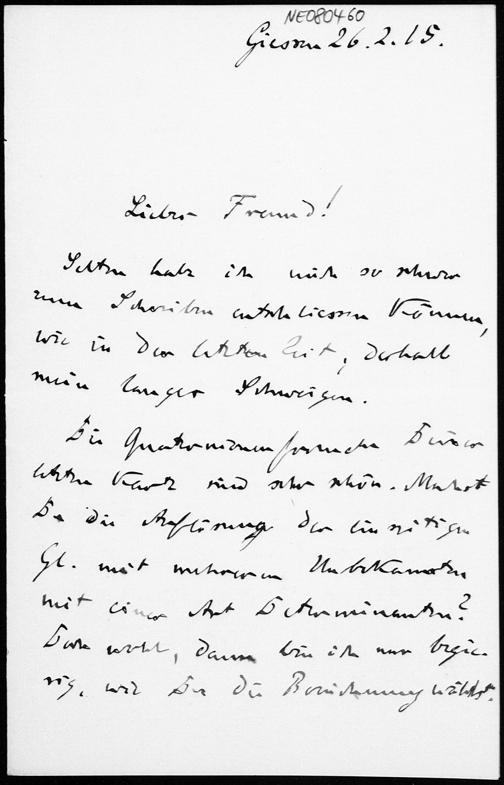 NE080460
Giessen 26.2.15.
Lieber Freund!
Selten habe ich mich so schwer
zum Schreiben entschliessen können,
wie in der letzten Zeit, deshalb
mein langes Schweigen.
Die Quaternionensprache Deiner
letzten Karte sind sehr schön. Machst
Du die Auflösung der einseitigen
Gl. mit mehreren Unbekannten
mit einer Art Determinanten?
Doch wohl, dann bin ich nur begie-
rig, wie Du die Bezeichnung wählst.